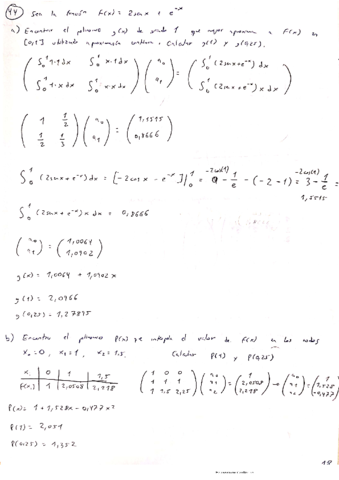 44 Sea la función F(x) = 2 sin x + e^-x
a) Encontrar el polinomio y(x) de grado 1 que mejor aproxima a F(x) en
[0,1] utilizando aproximación continua. Calcular y(1) y y(0,25).
( ∫₀¹ 1·1 dx   ∫₀¹ x·1 dx ) ( a₀ ) = ( ∫₀¹ (2 sin x + e^-x) dx )
( ∫₀¹ 1·x dx   ∫₀¹ x·x dx ) ( a₁ )   ( ∫₀¹ (2 sin x + e^-x) x dx )
( 1   1/2 ) ( a₀ ) = ( 1,5515 )
( 1/2   1/3 ) ( a₁ )   ( 0,8666 )
∫₀¹ (2 sin x + e^-x) dx = [-2 cos x - e^-x]|₀¹ = -2cos(1) - 1/e - (-2 - 1) = -2cos(1) + 3 - 1/e =
1,5515
∫₀¹ (2 sin x + e^-x) x dx = 0,8666
( a₀ ) = ( 1,0064 )
( a₁ )   ( 1,0902 )
y(x) = 1,0064 + 1,0902 x
y(1) = 2,0966
y(0,25) = 1,27895
b) Encontrar el polinomio P(x) que interpola el valor de F(x) en los nodos
x₀ = 0, x₁ = 1, x₂ = 1.5. Calcular P(1) y P(0,25)
xᵢ | 0 | 1 | 1,5
F(xᵢ) | 1 | 2,0508 | 2,218
( 1 0 0 ) ( a₀ ) = ( 1 ) → ( a₀ ) = ( 1 )
( 1 1 1 ) ( a₁ )   ( 2,0508 )   ( a₁ )   ( 1,528 )
( 1 1,5 2,25 ) ( a₂ )   ( 2,218 )   ( a₂ )   ( -0,477 )
P(x) = 1 + 1,528x - 0,477x²
P(1) = 2,051
P(0,25) = 1,352